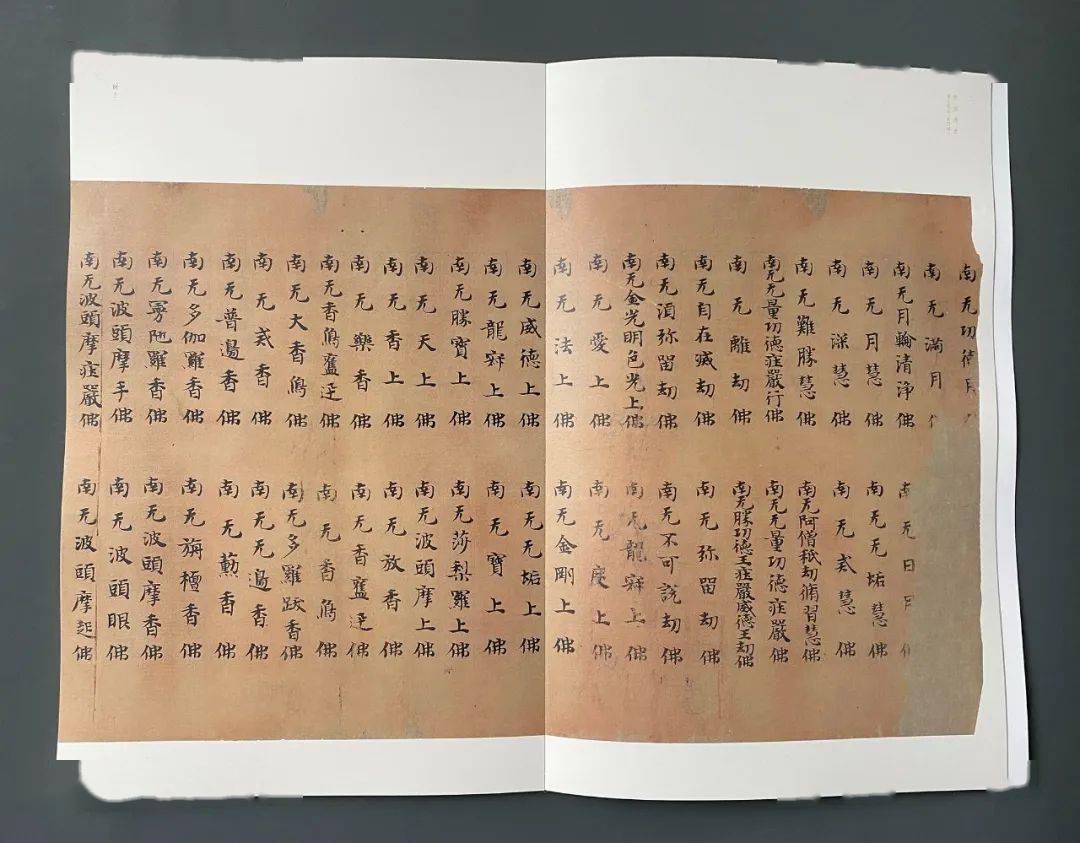 南无功德月
南无滿月
南无月輪清淨佛
南无日月
南无月慧佛
南无无垢慧佛
南无深慧佛
南无慧佛
南无難勝慧佛
南无阿僧祇劫脩習慧佛
南无无量功德莊嚴行佛
南无无量功德莊嚴佛
南无離劫佛
南无勝功德王莊嚴威德王劫佛
南无自在滅劫佛
南无弥留劫佛
南无須弥留劫佛
南无不可說劫佛
南无金光明色光上佛
南无龍寂上佛
南无愛上佛
南无度上佛
南无法上佛
南无金剛上佛
南无威德上佛
南无无垢上佛
南无龍寂上佛
南无寶上佛
南无勝寶上佛
南无莎梨羅上佛
南无天上佛
南无波頭摩上佛
南无香上佛
南无放香佛
南无樂香佛
南无香奮迅佛
南无香象奮迅
南无香象
南无大香象佛
南无多羅跋香佛
南无香佛
南无无邊香佛
南无普邊香佛
南无薰香佛
南无多伽羅香佛
南无旃檀香佛
南无寧陁羅香佛
南无波頭摩香佛
南无波頭摩手佛
南无波頭眼佛
南无波頭摩莊嚴佛
南无波頭摩起佛